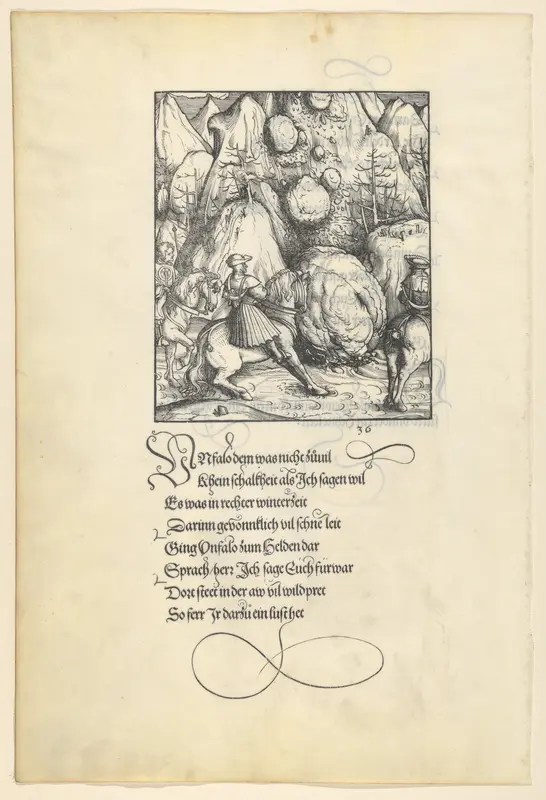 36
VNfalo dem was nicht zuuil
Khein schalkheit als Ich sagen wil
Es was in rechter winterzeit
Darinn gewonnklich vil schne leit
Ging Vnfalo zum Helden dar
Sprach/ herr Ich sage Euch fürwar
Dort steet in der aw vil wildpret
So ferr Ir darzů ein lust het